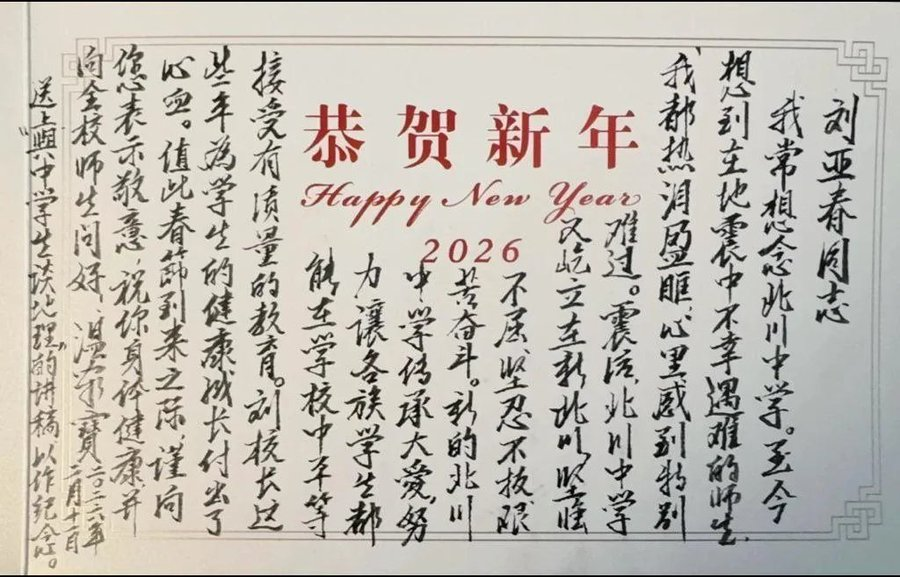 恭贺新年
Happy New Year
2026
刘亚春同志
我常想念北川中学。至今
想到在地震中不幸遇难的师生，
我都热泪盈眶，心里感到特别
难过。震后，北川中学
又屹立在新北川，坚强
不屈，坚忍不拔，艰
苦奋斗。新的北川
中学传承大爱，努
力讓各族学生都
能在学校中平等
接受有质量的教育。刘校长这
些年为学生的健康成长付出了
心血。值此春节到来之际，谨向
您表示敬意，祝你身体健康，并
向全校师生问好。温家寶
二〇二六年
二月十日
送上“與中学生谈地理”的讲稿，以作纪念。